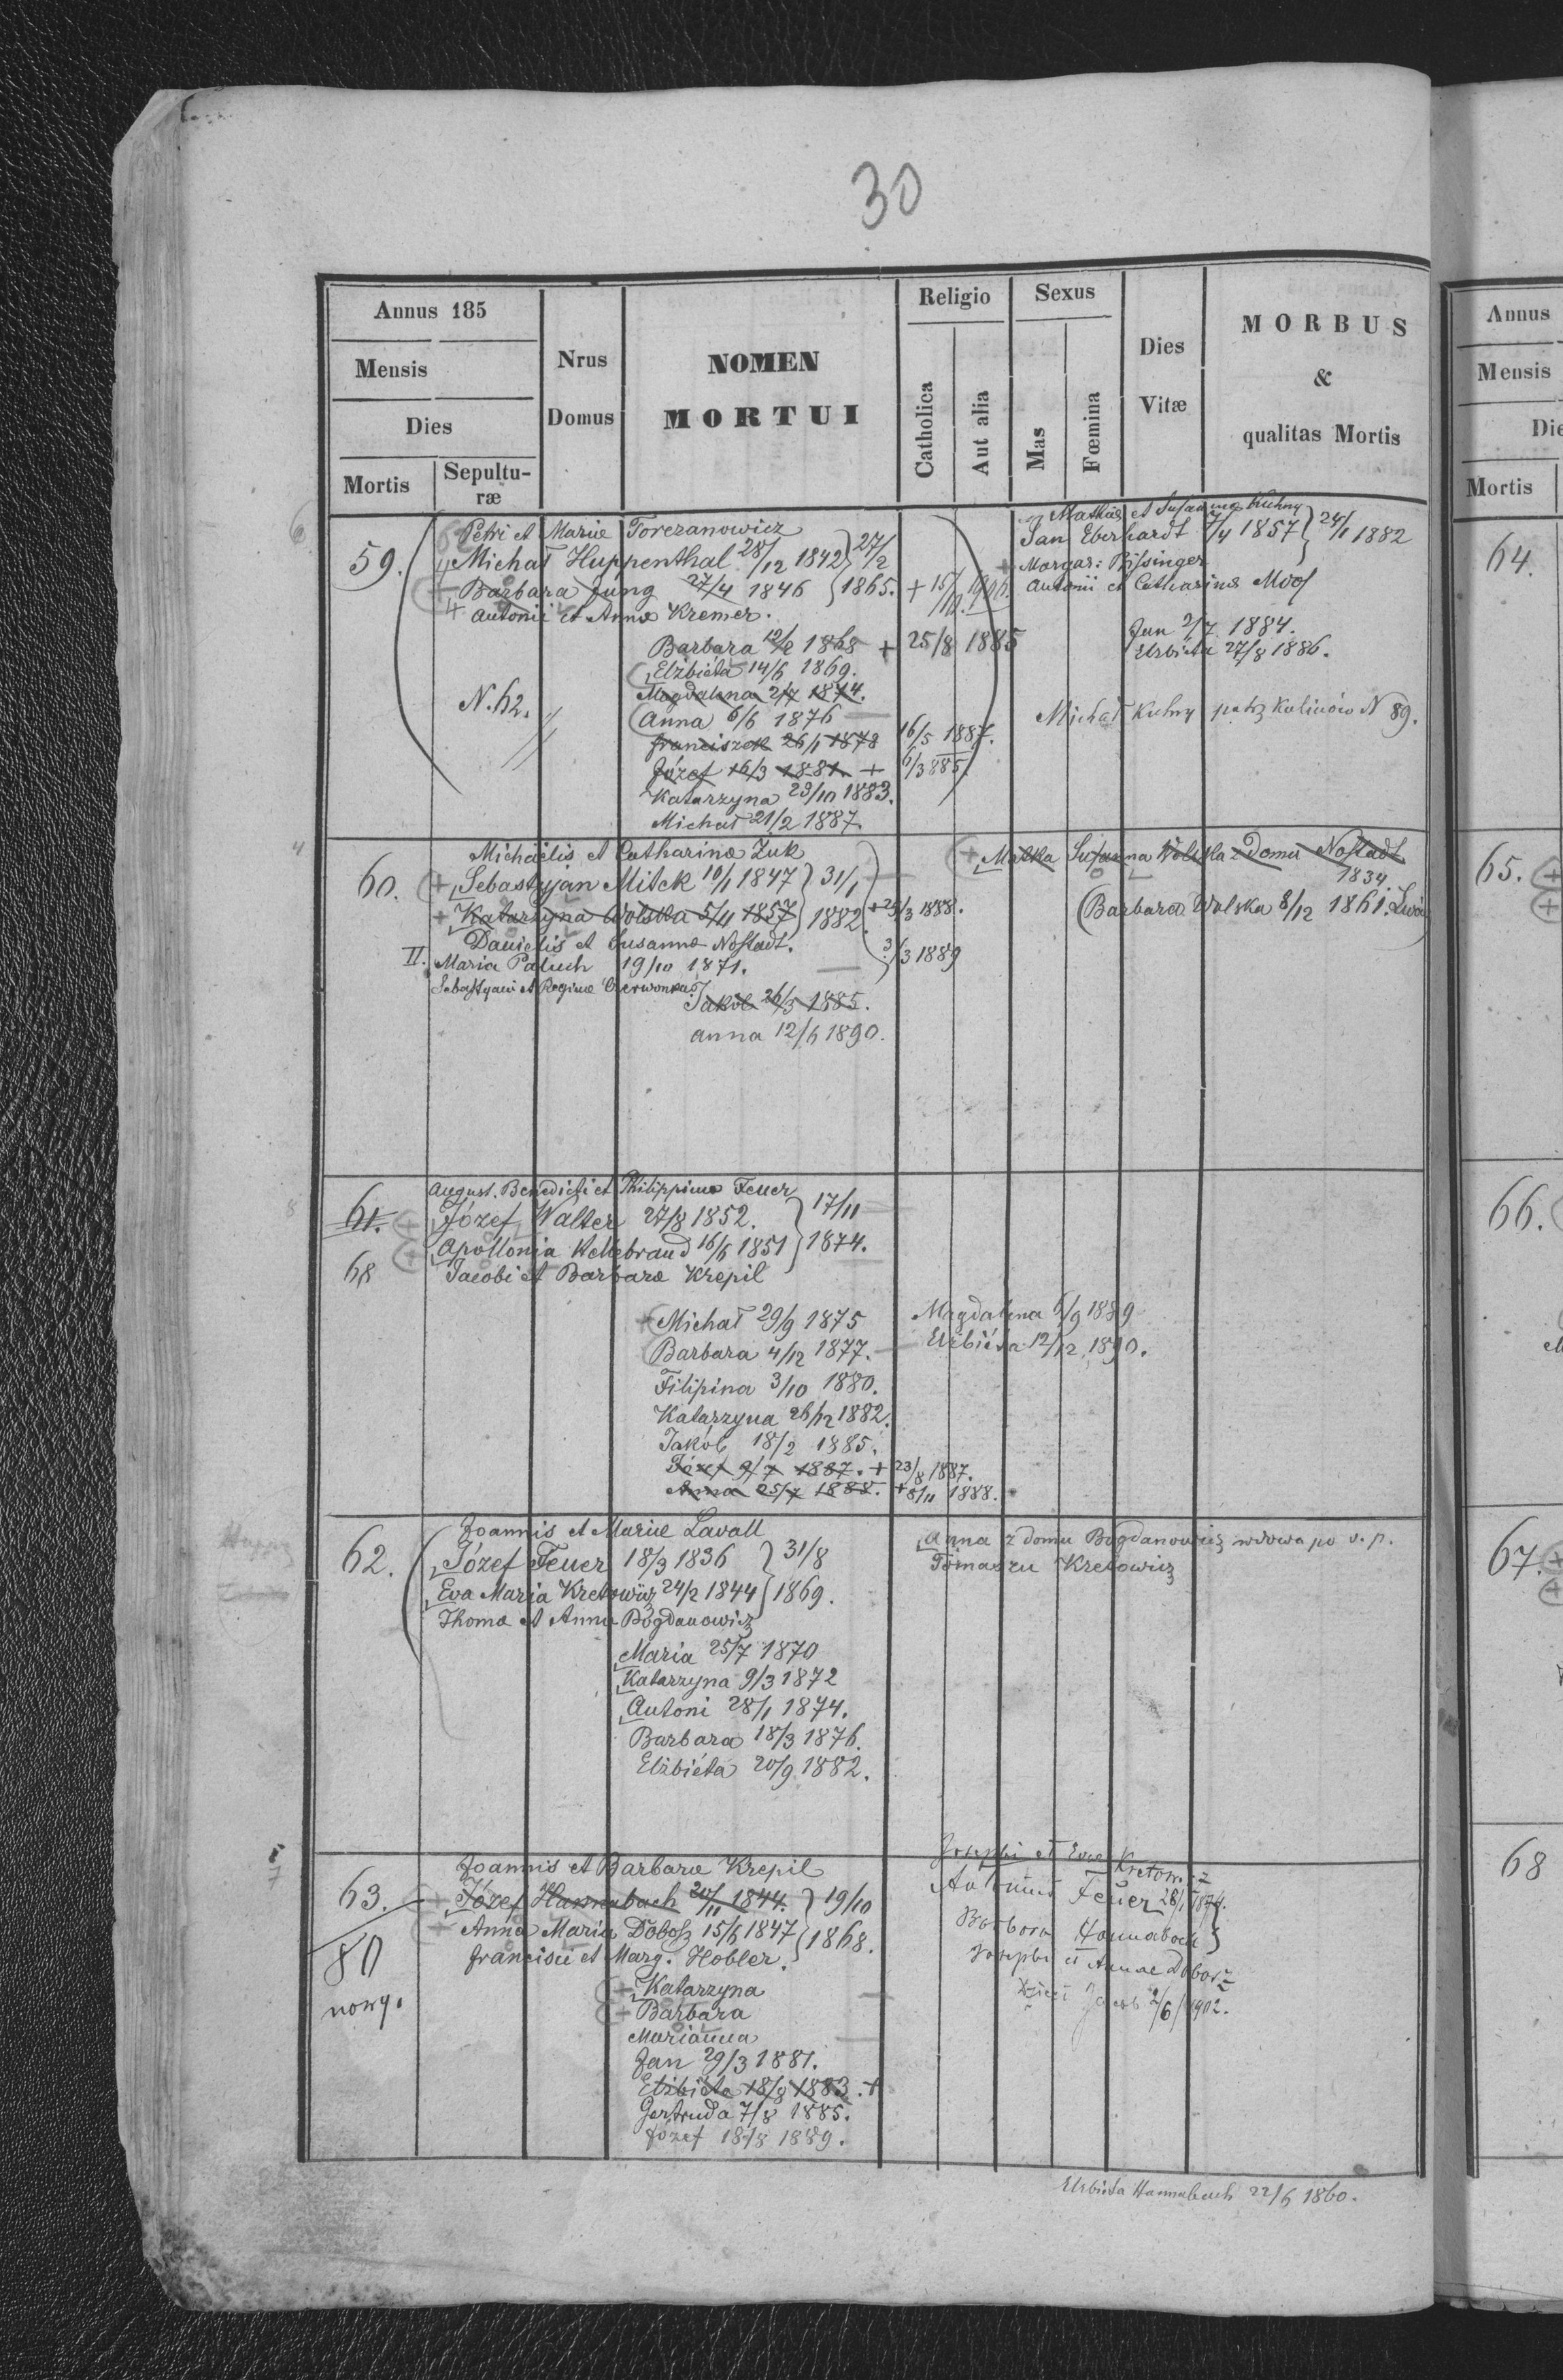 30
Annus 185
Mensis
Dies
Mortis
Sepultu-
ræ
Nrus
Domus
NOMEN
MORTUI
Religio
Catholica
Aut alia
Sexus
Mas
Fœmina
Dies
Vitæ
MORBUS
&
qualitas Mortis
59.
Petri et Mariæ Torezanowicz
Michał Huppenthal 28/12 1842 } 27/2
Barbara Jung 27/4 1846 } 1865. + 15/ 1906.
Antonii et Annæ Kremer.
Barbara 12/2 1868 + 25/8 1885
Elżbieta 14/6 1869.
Magdalena 2/7 1874.
N. 62.
Anna 6/6 1876
Franciszek 26/1 1878 16/5 1887.
Józef 16/3 1881. + 6/3 885.
Katarzyna 23/10 1883.
Michał 21/2 1887.
Mathiæ et Susannæ Kuhny
Jan Eberhardt 7/4 1857 } 24/1 1882
Margar: Bissinger
Antonii et Catharinæ Moos
Jan 2/7 1884.
Elżbieta 27/8 1886.
Michał Kuhny patrz Kalinów N 89.
60.
Michaëlis et Catharinæ Żuk
Sebastyjan Mitek 10/1 1847 } 31/1
+ Katarzyna Wolska 5/11 1857 } 1882. + 25/3 1888.
Danielis et Susannæ Nostadt.
3/3 1889
II. Maria Paluch 19/10 1871.
Sebastyani et Reginæ Czerwonka
Jakób 26/5 1885.
Anna 12/6 1890.
Matka Susanna Wolska z domu Nostadt
1834
Barbara Wolska 8/12 1861. Lwów
61.
68
August. Benedicti et Philippinæ Feuer
Józef Walter 27/8 1852. } 17/11
Apollonia Kellebrand 16/6 1851 } 1874.
Jacobi et Barbaræ Krepil
Michał 29/9 1875
Barbara 4/12 1877.
Filipina 3/10 1880.
Katarzyna 26/12 1882.
Jakób 18/2 1885.
Józef 9/7 1887. + 23/8 1887.
Anna 25/7 1888. + 8/11 1888.
Magdalena 6/9 1889
Elżbiéta 12/12 1890.
62.
Joannis et Mariæ Lavall
Józef Feuer 18/3 1836 } 31/8
Eva Maria Kretowicz 24/2 1844 } 1869.
Thomæ et Annæ Bogdanowicz
Maria 25/7 1870
Katarzyna 9/3 1872
Antoni 28/1 1874.
Barbara 18/3 1876.
Elżbiéta 20/9 1882.
Anna z domu Bogdanowicz wdowa po ś. p.
Tomaszu Kretowicz
63.
80
nowy.
Joannis et Barbaræ Krepil
Józef Hannabach 20/11 1844. } 19/10
Anna Maria Dobosz 15/6 1847 } 1868.
Francisci et Marg. Hobler.
Katarzyna
Barbara
Marianna
Jan 29/3 1881.
Elżbiéta 18/8 1883. +
Gertruda 7/8 1885.
Józef 18/8 1889.
Josephi et Evae Kretowicz
Antonius Feuer 28/1 1874.
Barbara Hannabach }
Josephi et Annae Dobosz
Dzieci Jacob 2/6/1902.
Elżbieta Hannabach 22/6 1860.
Annus
Mensis
Die
Mortis
64.
65.
66.
67.
68